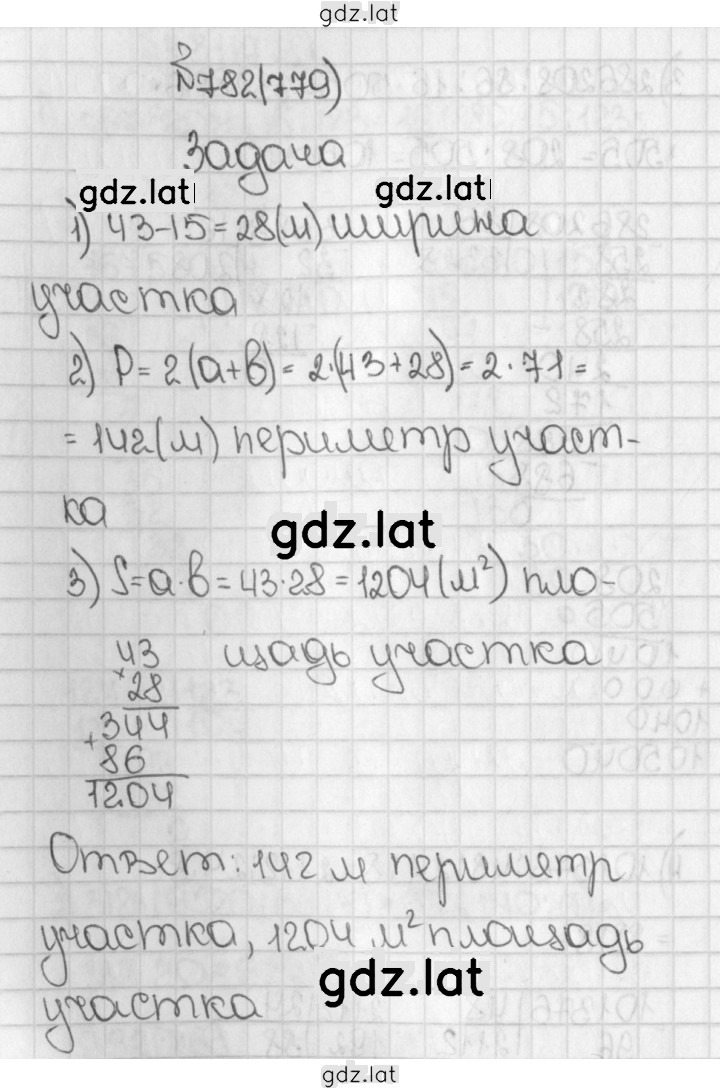 gdz.lat
№782(779)
Задача
gdz.lat gdz.lat
1) 43-15=28(м) ширина
участка
2) P=2(a+b)=2·(43+28)=2·71=
=142(м) периметр участ-
ка
gdz.lat
3) S=a·b=43·28=1204(м²) пло-
43 щадь участка
×28
344
+86
1204
Ответ: 142 м периметр
участка, 1204 м² площадь
gdz.lat
участка
gdz.lat